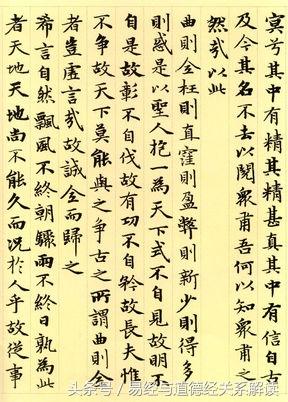 冥兮其中有精其精甚真其中有信自古
及今其名不去以閱衆甫吾何以知衆甫之
然哉以此
曲則全枉則直窪則盈弊則新少則得多
則惑是以聖人抱一為天下式不自見故明不
自是故彰不自伐故有功不自矜故長夫惟
不争故天下莫能與之争古之所謂曲則全
者豈虛言哉故誠全而歸之
希言自然飄風不終朝驟雨不終日孰為此
者天地天地尚不能久而況於人乎故從事
头条号 / 易经与道德经关系解读